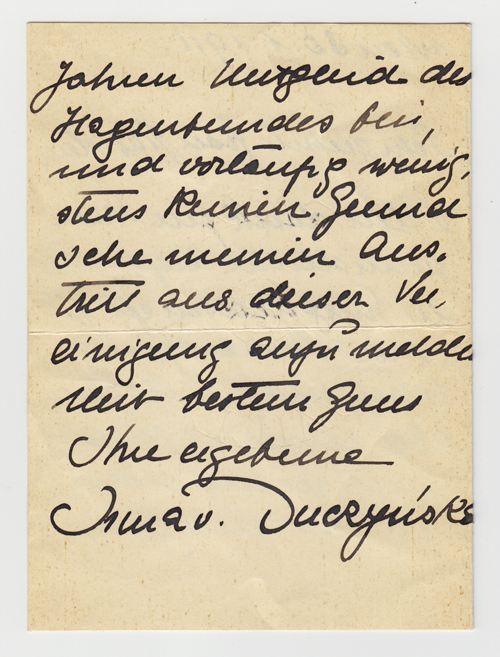 Jahren Mitglied des
Hagenbundes bin,
und vorläufig wenig,
stens keinen Grund
sehe meinen Aus,
tritt aus dieser Ver,
einigung anzumelden
Mit bestem Gruss
Ihre ergebene
Irma v. Duczyńska